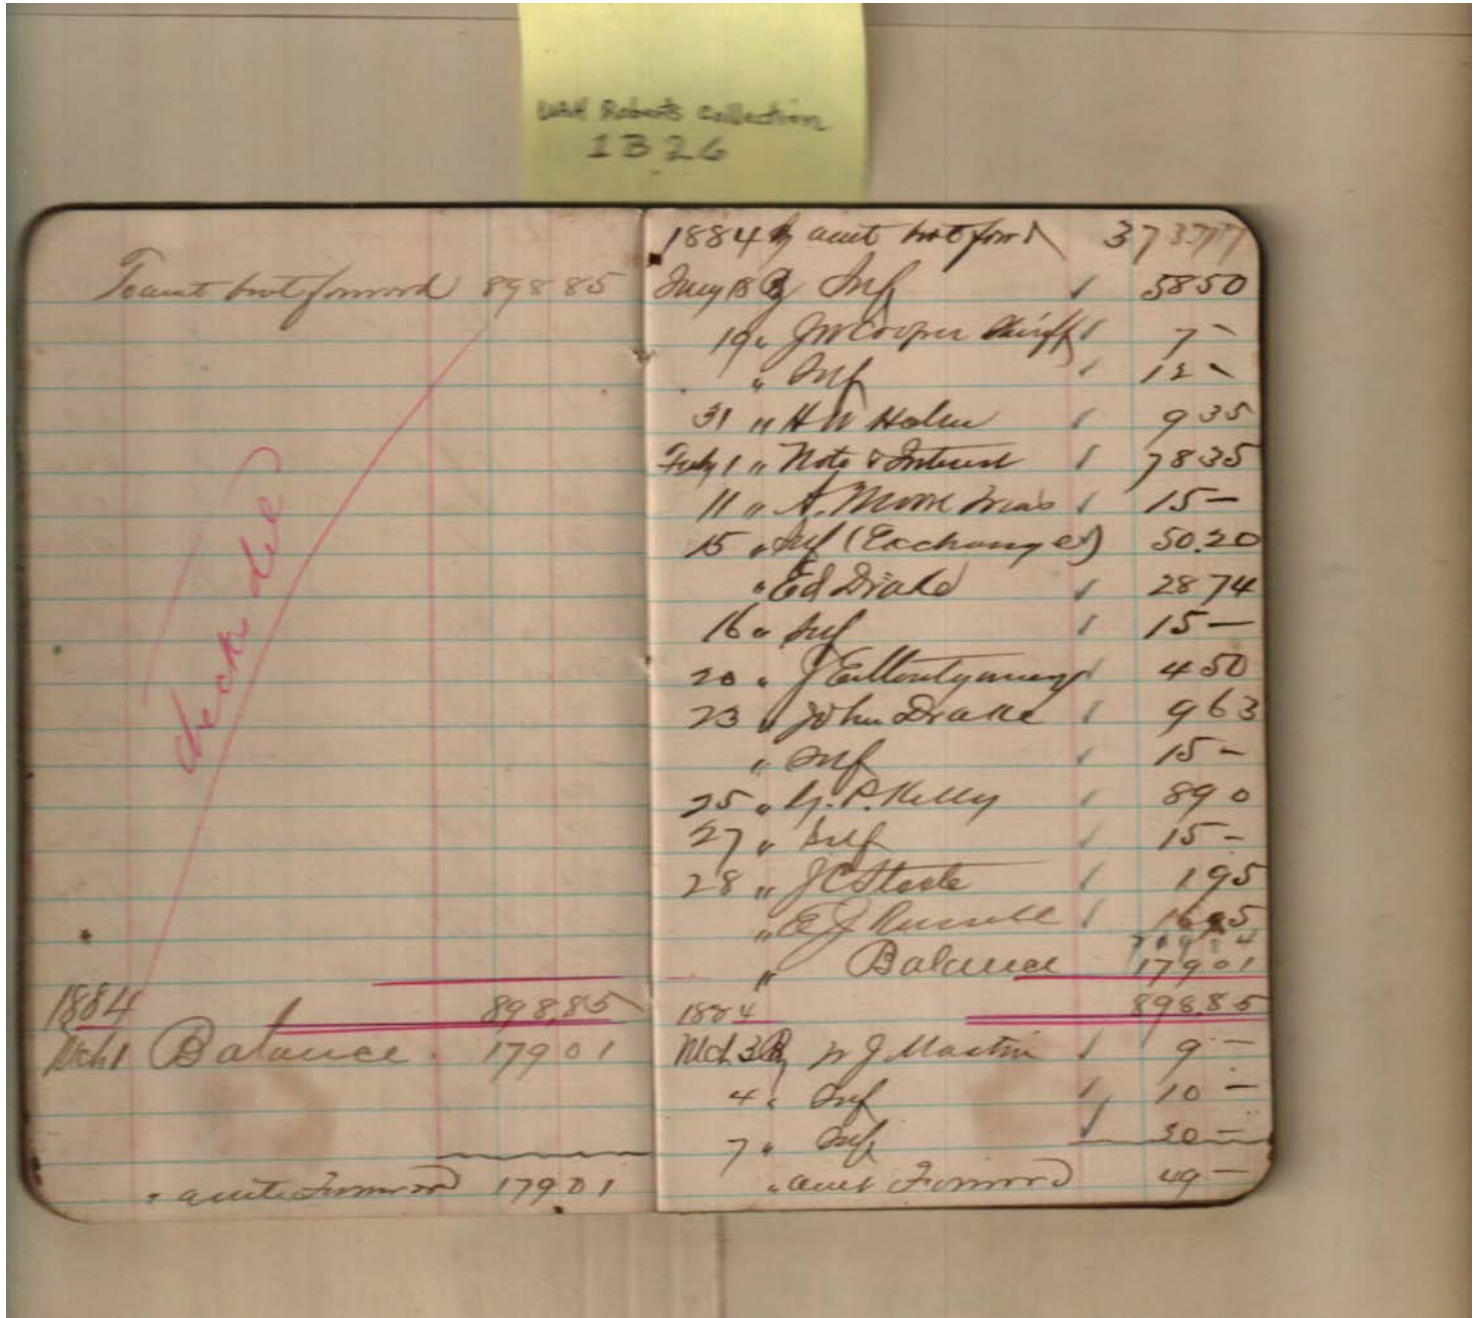 WAH Roberts collection
1B26
To amt brot forward 898 85
check del
1884
898,85
Mch 1 Balance 179 01
" amt Forward 179 01
1884 By amt brot forwd 373 77
Jany 18 By Self 58 50
19 " J W Cooper Sheriff 7 -
" Self 12 -
31 " H W 9 35
Feby 1 " Note & Interest 78 35
11 " A. Moore 15 -
15 " Self (Exchange) 50.20
" Ed Drake 28 74
16 " Self 15 -
20 " J E Montgomery 4 50
23 " John Drake 9 63
" Self 15 -
25 " G. P. Kelly 8 90
27 " Self 15 -
28 " J C Steele 1 95
" E J Russell 16 95
719 84
" Balance 179 01
1884 898.85
Mch 3 By W J Martin 9 -
4 " Self 10 -
7 " Self 30 -
" amt Forward 49 -